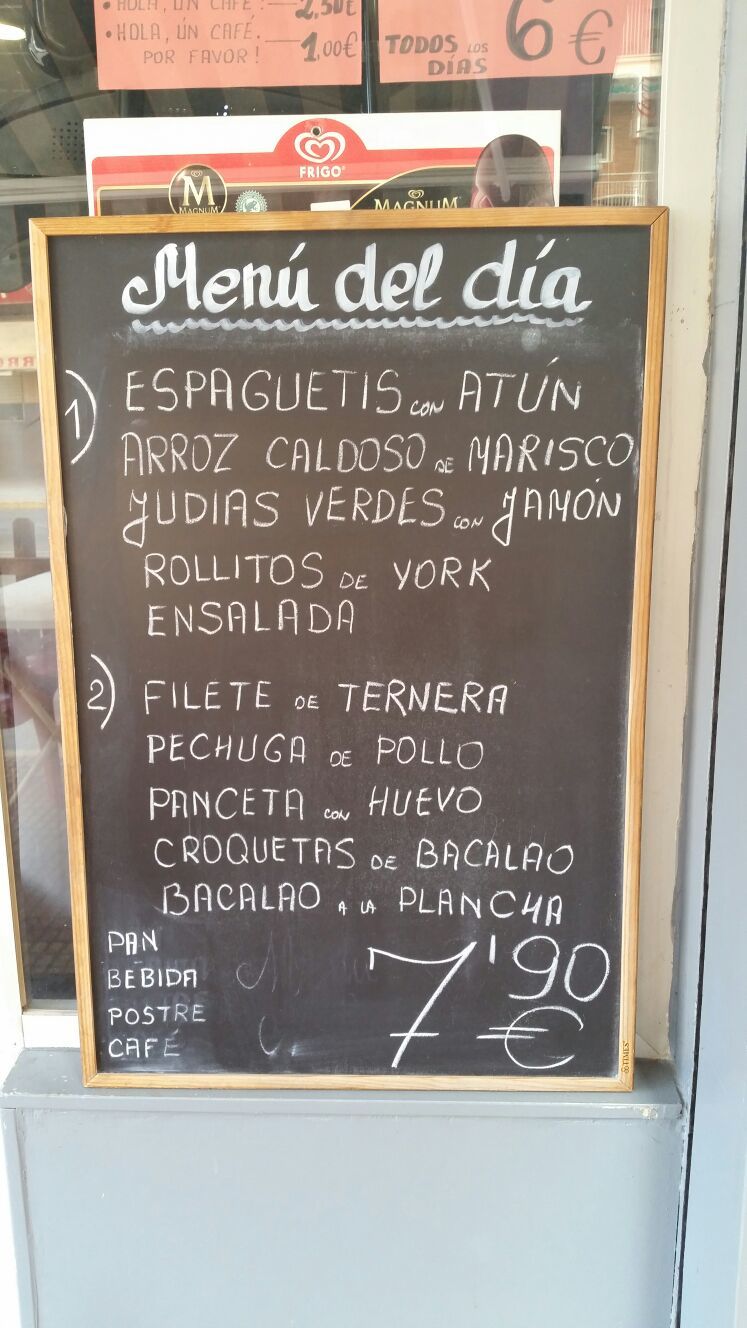 • HOLA, UN CAFÉ. — 2,50€
• HOLA, ÚN CAFÉ. — 1,00€
POR FAVOR!
TODOS LOS DÍAS 6€
FRIGO
M
MAGNUM
MAGNUM
Menú del día
1) ESPAGUETIS CON ATÚN
ARROZ CALDOSO DE MARISCO
JUDIAS VERDES CON JAMÓN
ROLLITOS DE YORK
ENSALADA
2) FILETE DE TERNERA
PECHUGA DE POLLO
PANCETA CON HUEVO
CROQUETAS DE BACALAO
BACALAO A LA PLANCHA
PAN
BEBIDA
POSTRE
CAFÉ
7'90
€
TIMES